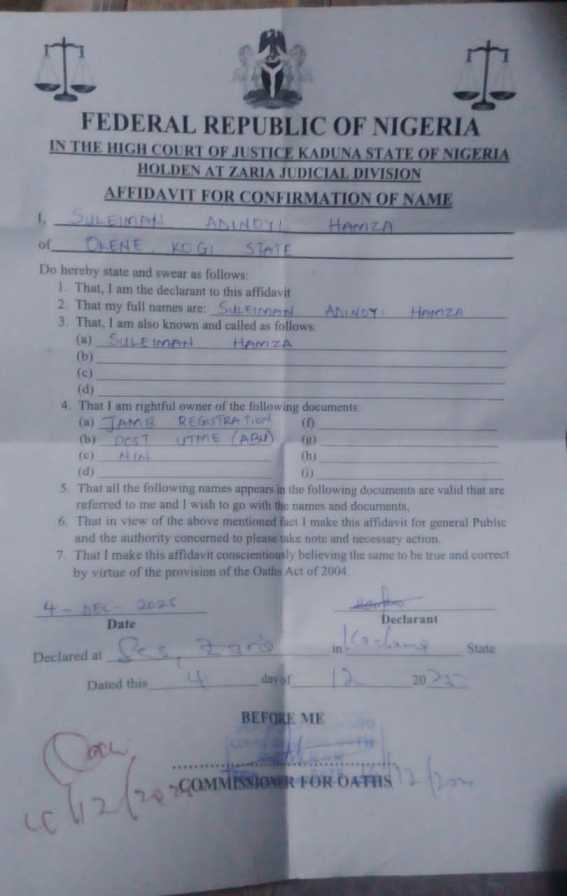 FEDERAL REPUBLIC OF NIGERIA
IN THE HIGH COURT OF JUSTICE KADUNA STATE OF NIGERIA
HOLDEN AT ZARIA JUDICIAL DIVISION
AFFIDAVIT FOR CONFIRMATION OF NAME
I, SULEIMAN ADINOYI HAMZA
of OKENE, KOGI STATE
Do hereby state and swear as follows:
1. That, I am the declarant to this affidavit
2. That my full names are: SULEIMAN ADINOYI HAMZA
3. That, I am also known and called as follows:
(a) SULEIMAN HAMZA
(b)
(c)
(d)
4. That I am rightful owner of the following documents:
(a) JAMB REGISTRATION (f)
(b) POST UTME (ABU) (g)
(c) NIN (h)
(d) (i)
5. That all the following names appears in the following documents are valid that are
referred to me and I wish to go with the names and documents.
6. That in view of the above mentioned fact I make this affidavit for general Public
and the authority concerned to please take note and necessary action.
7. That I make this affidavit conscientiously believing the same to be true and correct
by virtue of the provision of the Oaths Act of 2004.
4 - DEC - 2025
Date Declarant
Declared at Zaria in Kaduna State
Dated this 4 day of 12 2025
BEFORE ME
COMMISSIONER FOR OATHS